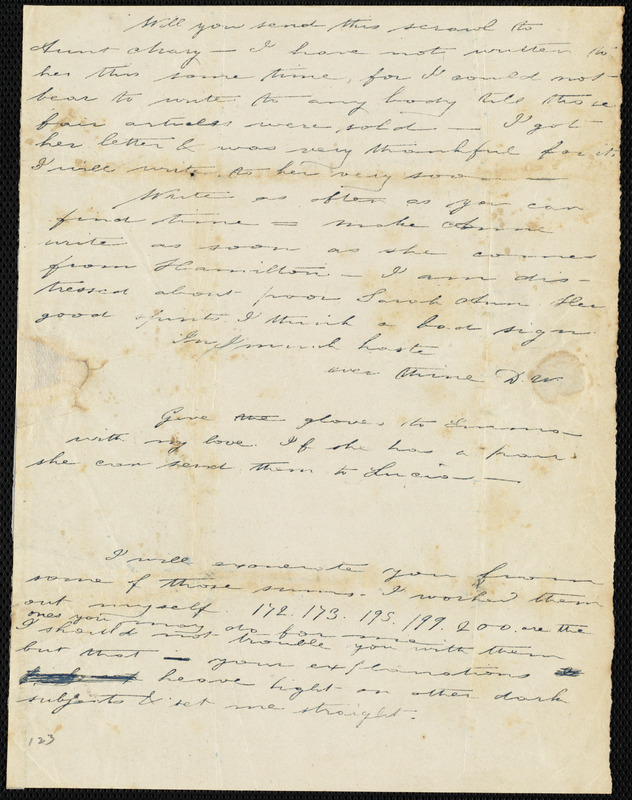 Will you send this scrawl to
Aunt Mary — I have not written to
her this some time, for I could not
bear to write to any body till those
fair articles were sold — I got
her letter & was very thankful for it.
I will write to her very soon —
Write as often as you can
find time = make Anne
write as soon as she comes
from Hamilton — I am dis-
tressed about poor Sarah Ann Her
good spirits I think a bad sign
In much haste
ever thine D. W.
Give the gloves to Emma
with my love. If she has a pair
she can send them to Lucia —
I will exonerate you from
some of those sums. I worked them
out myself. 172. 173. 195. 199. 200. are the
ones you may do for me
I should not trouble you with them
but that — your explanations
heave light on other dark
subjects & set me straight.
123